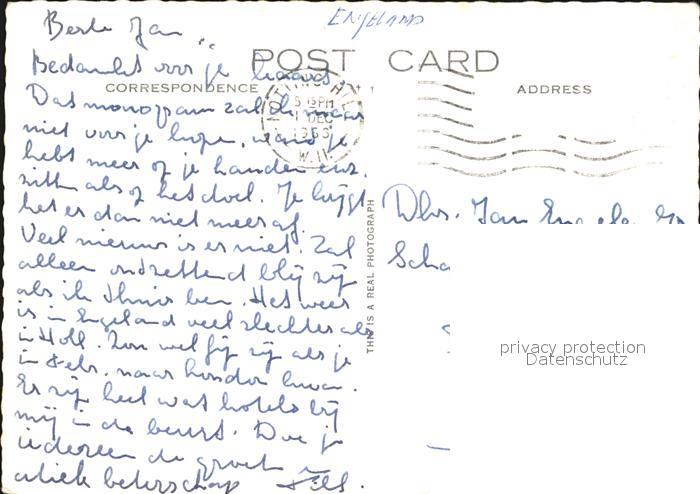 England
Beste Jan,
POST CARD
Bedankt voor je kaart.
CORRESPONDENCE
ADDRESS
Dat monogram zal ik maar
niet voor je kopen, want je
hebt meer op je handen enz.
zitten als op het doel. Je krijgt
het er dan niet meer af.
Veel nieuws is er niet. Zal
alleen ontzettend blij zijn
als ik thuis ben. Het weer
is in Engeland veel slechter als
in Holl. Zou wel fijn zijn als je
in Febr. naar London kwam.
Er zijn heel wat hotels bij
mij in de buurt. Doe je
iedereen de groet
beterschap
5 15 PM
1 DEC
1963
W.11
Dhr. Jan
Scha
THIS IS A REAL PHOTOGRAPH
privacy protection
Datenschutz